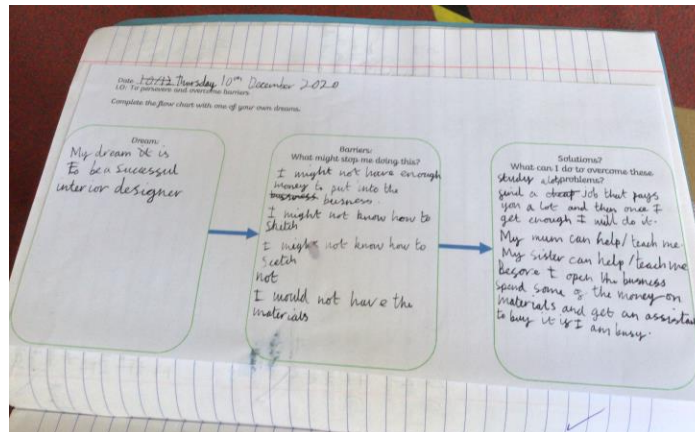 Date 10/12 Thursday 10th December 2020
LO: To persevere and overcome barriers
Complete the flow chart with one of your own dreams.
Dream:
My dream it is
to be a Successul
interior designer
Barriers:
What might stop me doing this?
I might not have enough
money to put into the
business.
I might not know how to
Sketch
I might not know how to
Scetch
not
I would not have the
materials
Solutions?
What can I do to overcome these
problems?
study a lot
find a job that pays
you a lot and then once I
get enough I will do it.
My mum can help/teach me
My sister can help/teach me
Before I open the business
spend some of the money on
materials and get an assistant
to buy it if I am busy.